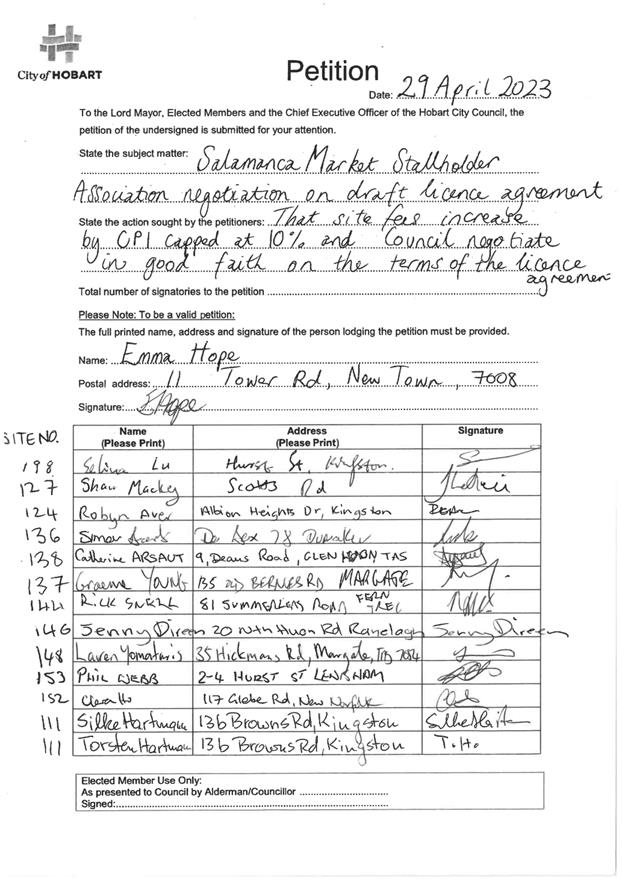 City of HOBART
Petition
Date: 29 April 2023
To the Lord Mayor, Elected Members and the Chief Executive Officer of the Hobart City Council, the
petition of the undersigned is submitted for your attention.
State the subject matter: Salamanca Market Stallholder
Association negotiation on draft licence agreement
State the action sought by the petitioners: That site fees increase
by CPI capped at 10% and Council negotiate
in good faith on the terms of the licence
agreemen
Total number of signatories to the petition
Please Note: To be a valid petition:
The full printed name, address and signature of the person lodging the petition must be provided.
Name: Emma Hope
Postal address: 11 Tower Rd, New Town, 7008
Signature: EHope
SITE NO. Name (Please Print) Address (Please Print) Signature
198 Selina Lu Hurst St. Kingston.
127 Shaw Mackey Scotts Rd
124 Robyn Aver Albion Heights Dr, Kingston
136 Simon
138 Catherine ARSAUT 9, Deans Road, GLEN HUON TAS
137 Graeme YOUNG 135 BERNES RD MARGATE
144 RICK SNELL 81 SUMMERLEAS ROAD FERN TREE
146 Jenny Direen 20 Nth Huon Rd Ranelagh Jenny Direen
148 Lauren Yomataris 35 Hickmans Rd, Margate, TAS 7054
153 PHIL WEBB 2-4 HURST ST LENHAM
152 Clean Ho 117 Glebe Rd, New Norfolk
111 Silke Hartmann 136 Browns Rd, Kingston
111 Torsten Hartman 136 Browns Rd, Kingston T. Ho.
Elected Member Use Only:
As presented to Council by Alderman/Councillor
Signed: